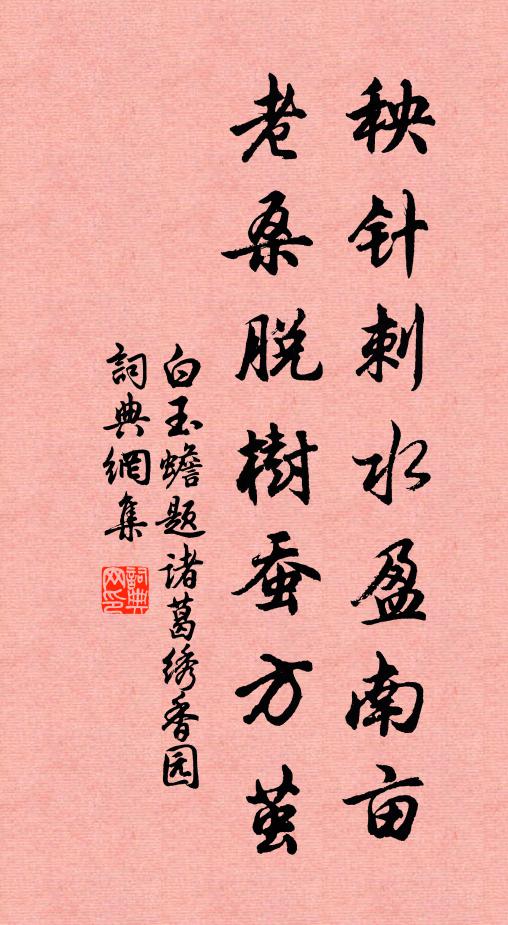 秧针刺水盈南亩
老桑脱樹蚕方茧
白玉蟾题诸葛绣香园
詞典網集
詞典网印